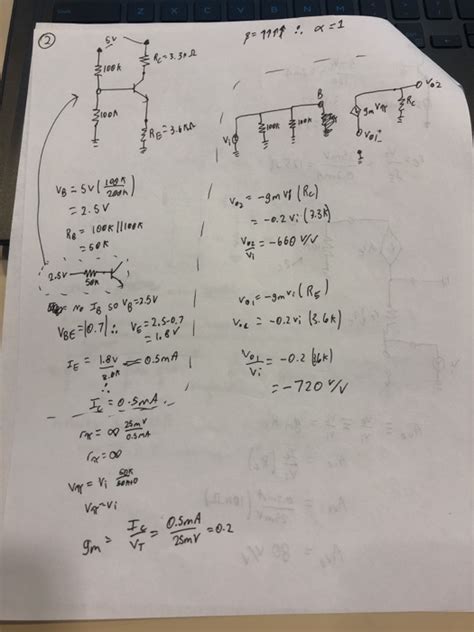 ②
5V
β=∞ ∴ α=1
100k
Rc=3.3kΩ
100k
RE=3.6kΩ
Vi
100k
100k
B
gmVπ
Rc
Vo2
Vo1
VB = 5V (100k/200k)
= 2.5V
RB = 100k||100k
= 50k
2.5V
50k
No IB so VB=2.5V
VBE=|0.7| ∴ VE=2.5-0.7
=1.8V
IE = 1.8V = 0.5mA
∴
Ic = 0.5mA
rπ = ∞ 25mV/0.5mA
rπ=∞
Vπ = Vi
Vπ=Vi
gm = Ic/VT = 0.5mA/25mV = 0.2
Vo2 = -gmVπ (Rc)
= -0.2Vi (3.3k)
Vo2/Vi = -660 V/V
Vo1 = -gmVi (RE)
= -0.2Vi (3.6k)
Vo1/Vi = -0.2 (3.6k)
= -720 V/V